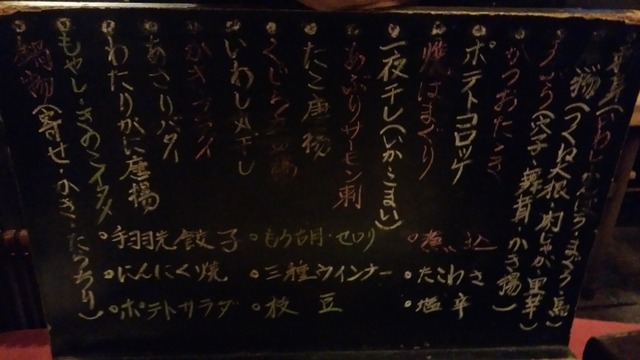 (いわし・かんぱち・まぐろ・馬)
(つくね大根・肉じゃが・里芋)
(穴子・舞茸・かき揚)
かつおたたき
ポテトコロッケ
焼はまぐり
一夜干し(いか・こまい)
あぶりサーモン刺
たこ唐揚
くじら
いわし丸干し
かきフライ
あさりバター
わたりがに唐揚
もやし・きのこイタメ
鍋物(寄せ・かき・たらちり)
煮込
たこわさ
塩辛
もろ胡・セロリ
三種ウインナー
枝豆
手羽先餃子
にんにく焼
ポテトサラダ